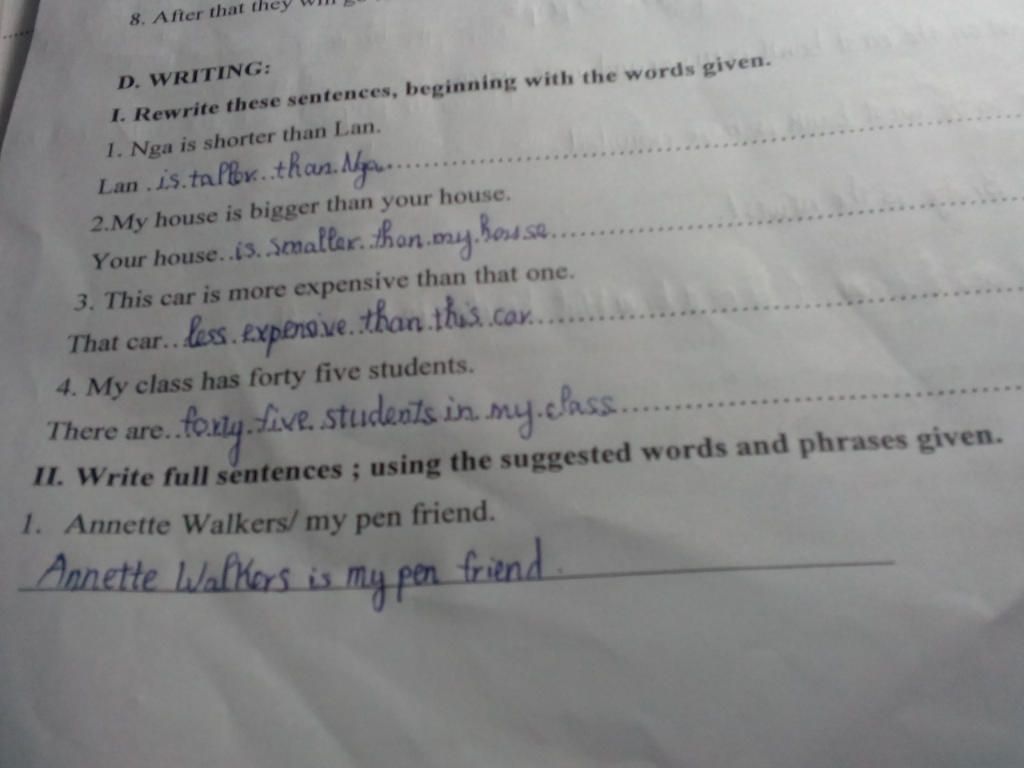 8. After that they will
D. WRITING:
I. Rewrite these sentences, beginning with the words given.
1. Nga is shorter than Lan.
Lan . is taller than Nga
2.My house is bigger than your house.
Your house.. is smaller than my house
3. This car is more expensive than that one.
That car.. less expensive than this car
4. My class has forty five students.
There are.. forty five students in my class
II. Write full sentences ; using the suggested words and phrases given.
1. Annette Walkers/ my pen friend.
Annette Walkers is my pen friend.